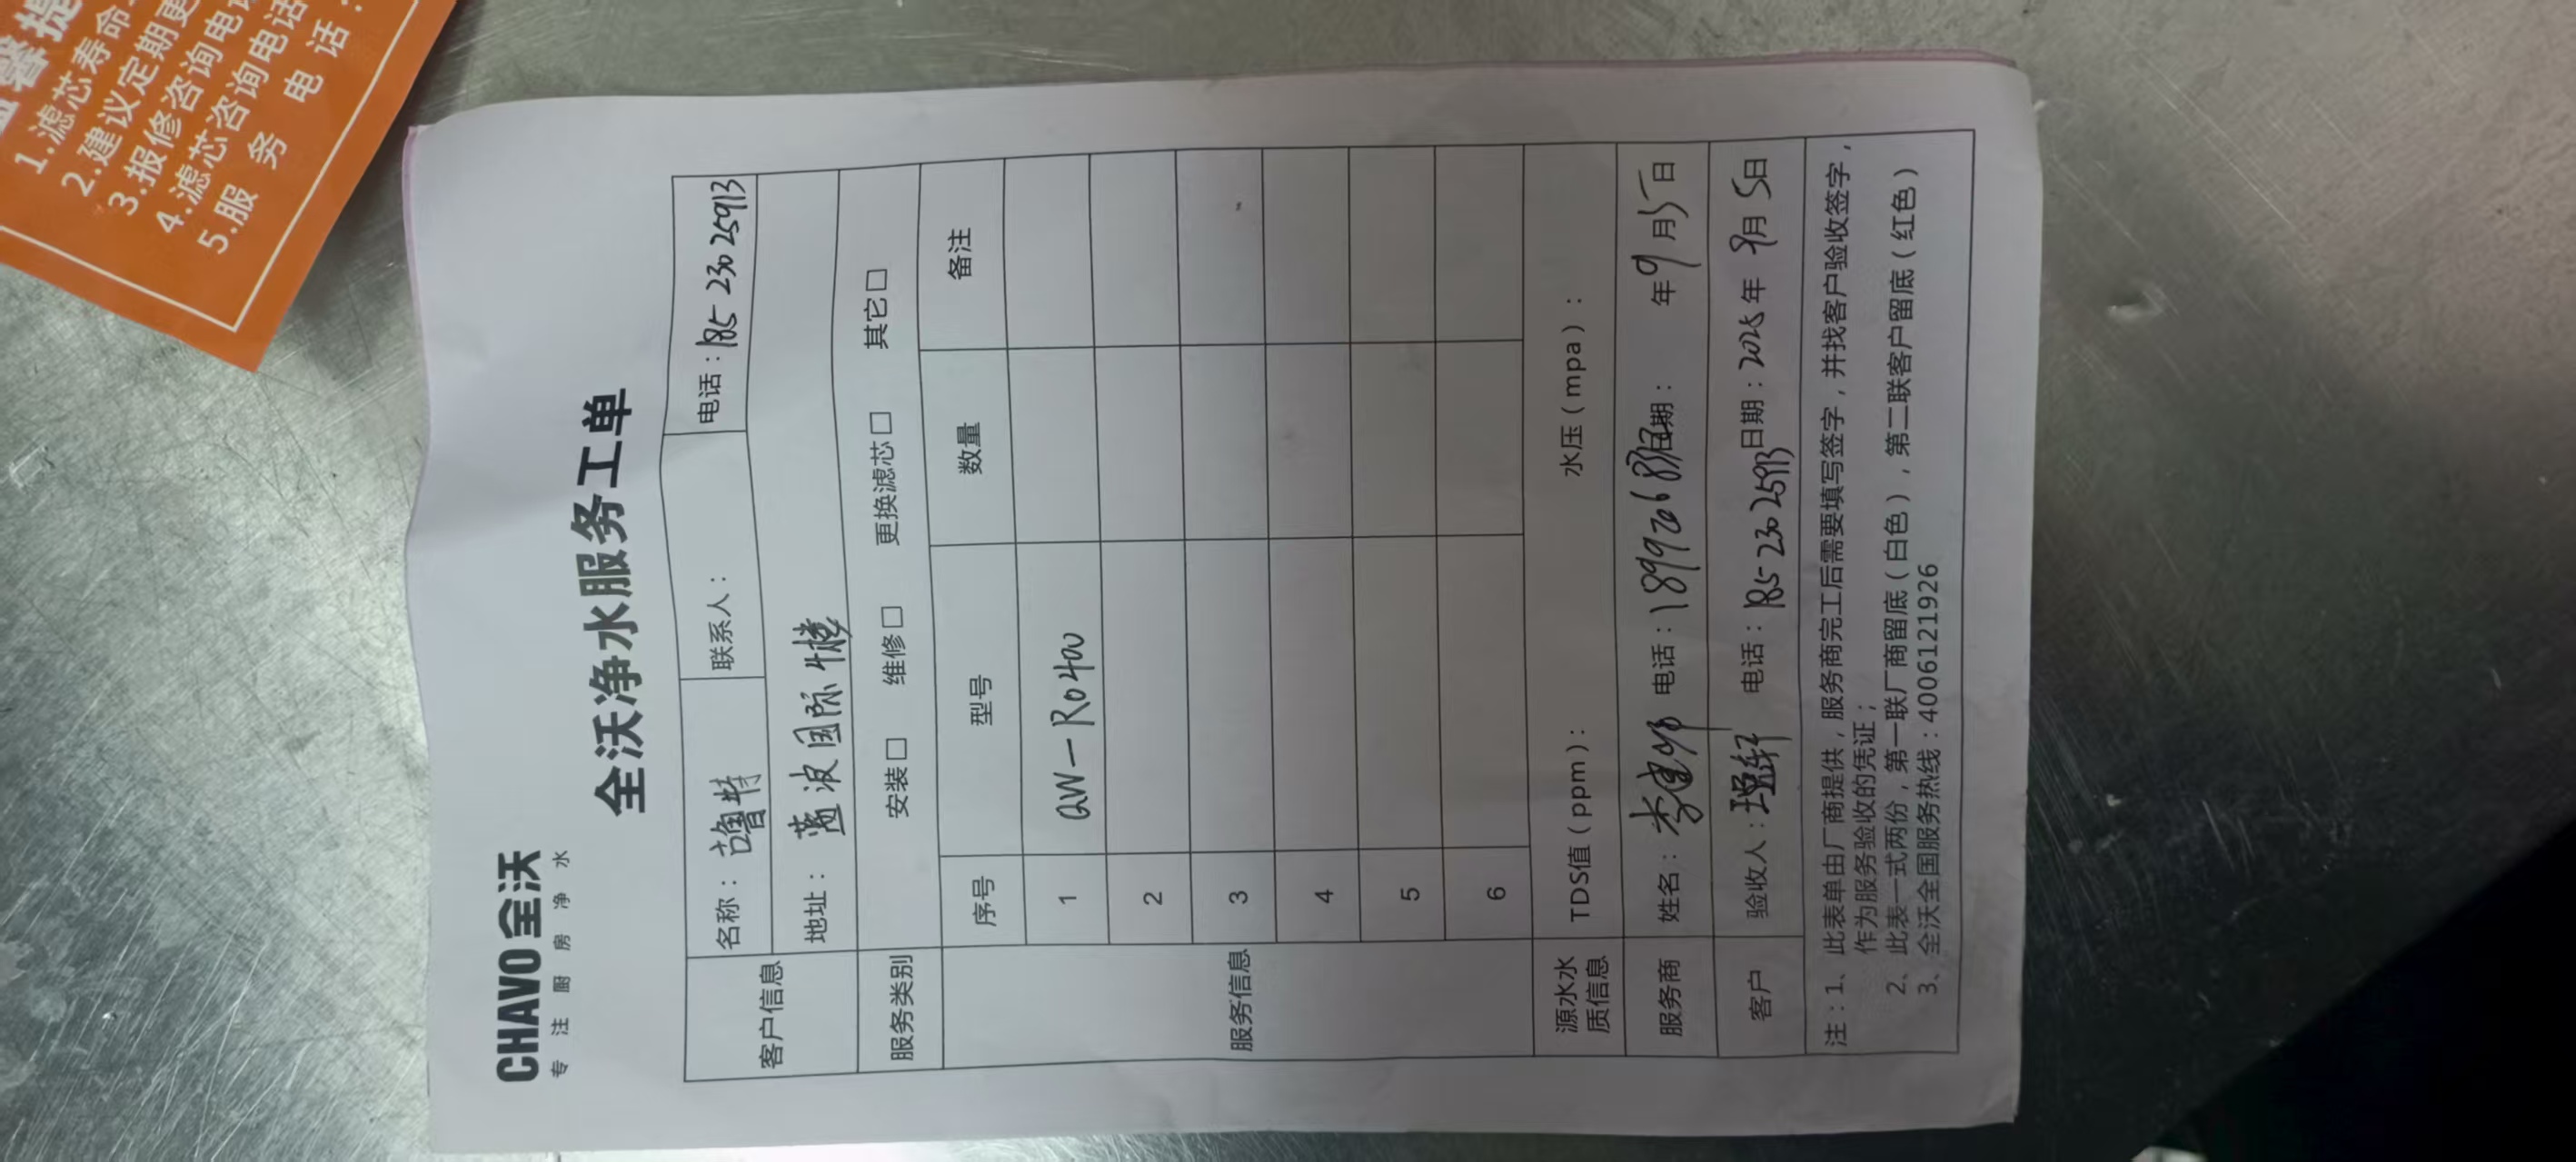 1.滤芯寿命
2.建议定期更
3.报修咨询电
4.滤芯咨询电话
5.服 务 电 话：
CHAVO全沃
专注厨房净水
全沃净水服务工单
客户信息 名称： 联系人： 电话：
地址：蓝波国际4楼
服务类别 安装□ 维修□ 更换滤芯□ 其它□
服务信息 序号 型号 数量 备注
1 QW-RO400
2
3
4
5
6
源水水质信息 TDS值（ppm）： 水压（mpa）：
服务商 姓名： 电话： 日期： 年9月5日
客户 验收人： 电话： 日期：2025年9月5日
注：1、此表单由厂商提供，服务商完工后需要填写签字，并找客户验收签字，
作为服务验收的凭证；
2、此表一式两份，第一联厂商留底（白色），第二联客户留底（红色）
3、全沃全国服务热线：4006121926